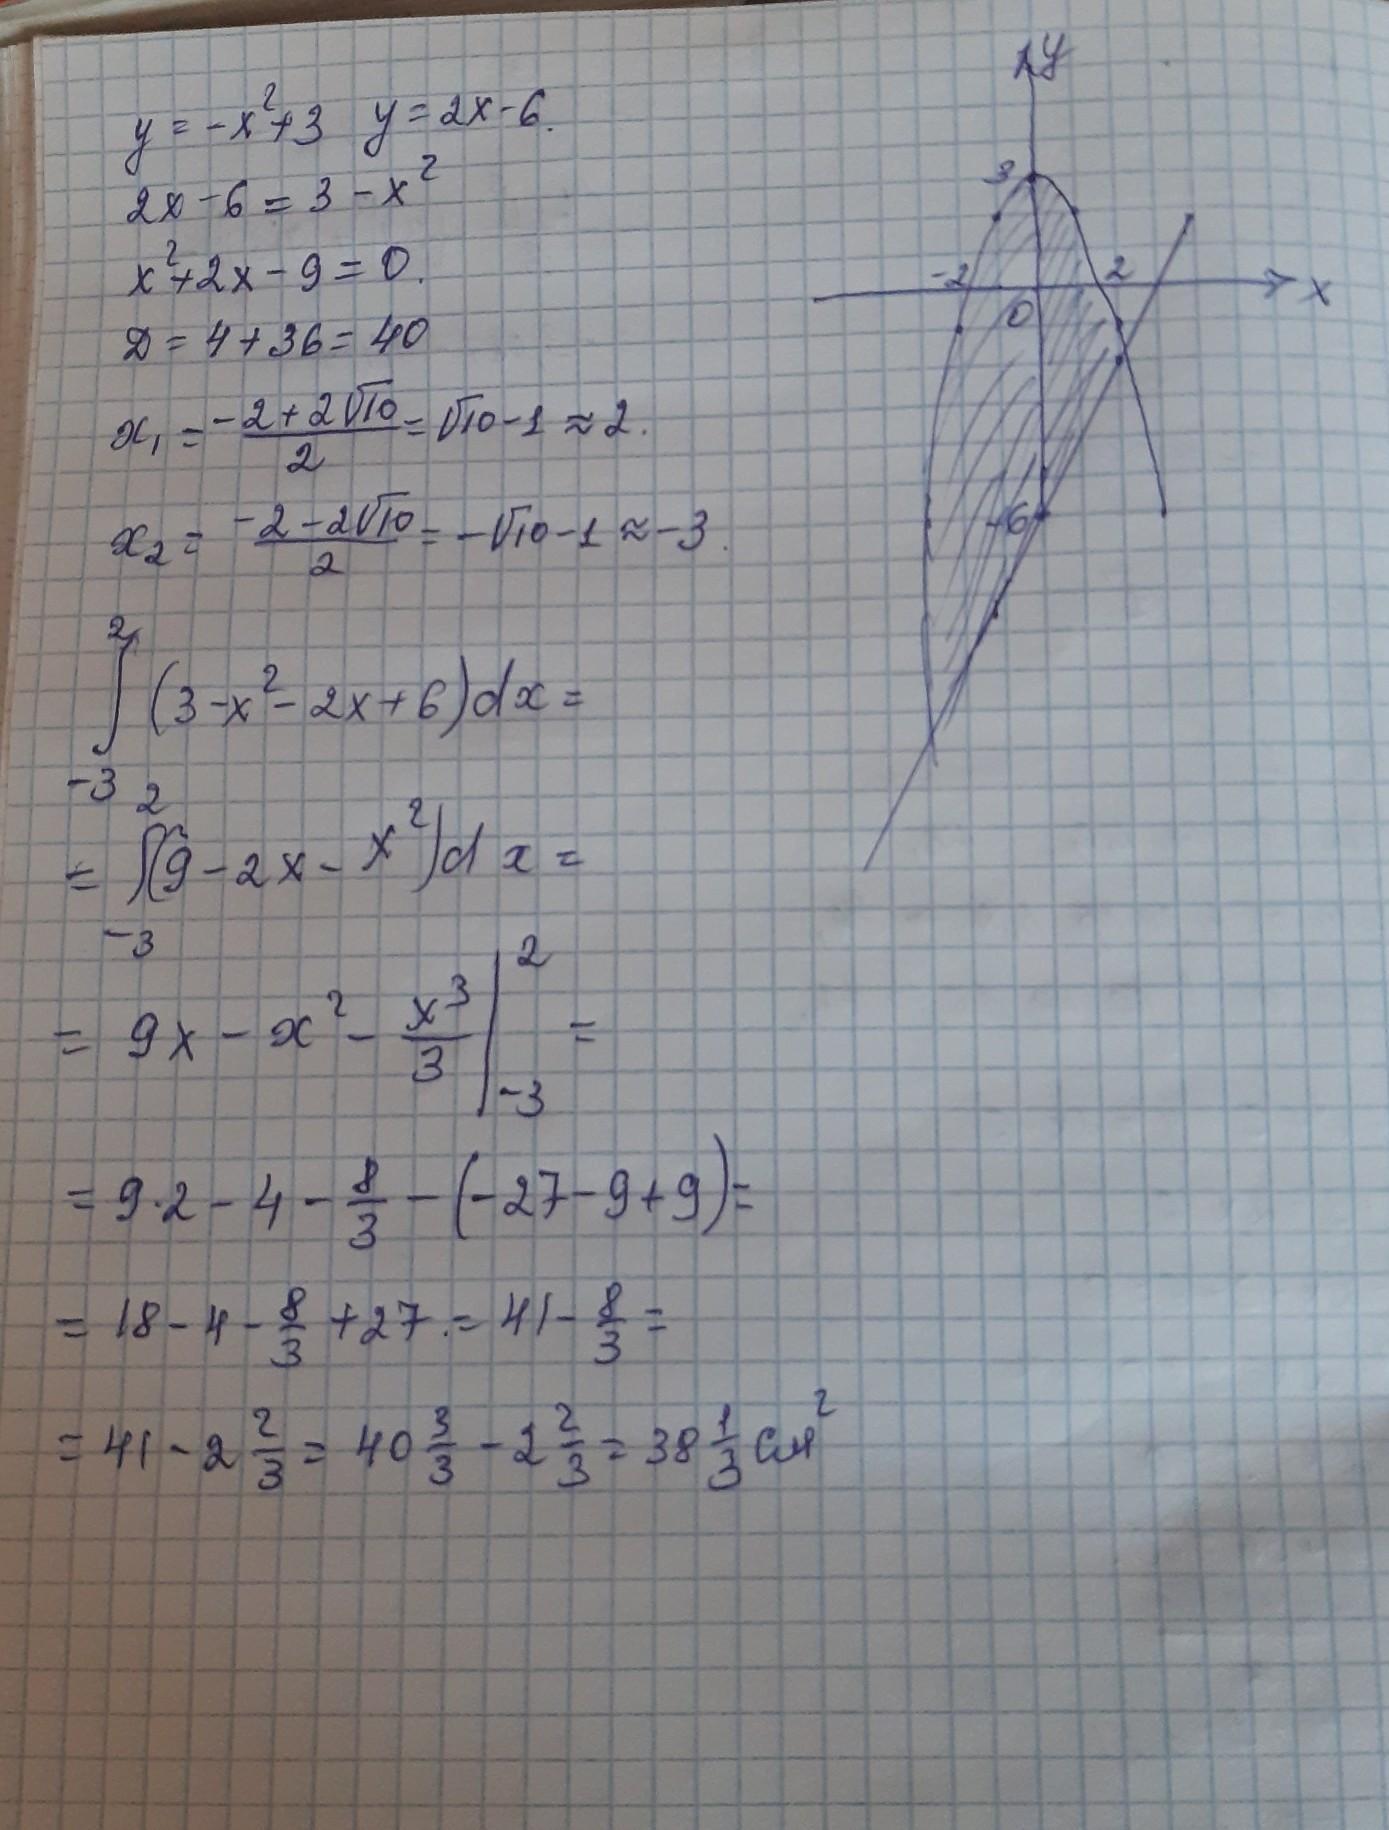 y = -x²+3 y = 2x-6.
2x-6 = 3-x²
x²+2x-9=0.
D = 4+36=40
x₁ = (-2+2√10)/2 = √10-1 ≈ 2.
x₂ = (-2-2√10)/2 = -√10-1 ≈ -3.
∫₋₃² (3-x²-2x+6)dx =
= ∫₋₃² (9-2x-x²)dx =
= 9x - x² - x³/3 |₋₃² =
= 9·2 - 4 - 8/3 - (-27-9+9) =
= 18-4-8/3+27 = 41-8/3 =
= 41-2 2/3 = 40 3/3 - 2 2/3 = 38 1/3 см²
y
3
-2 2
0 x
-6